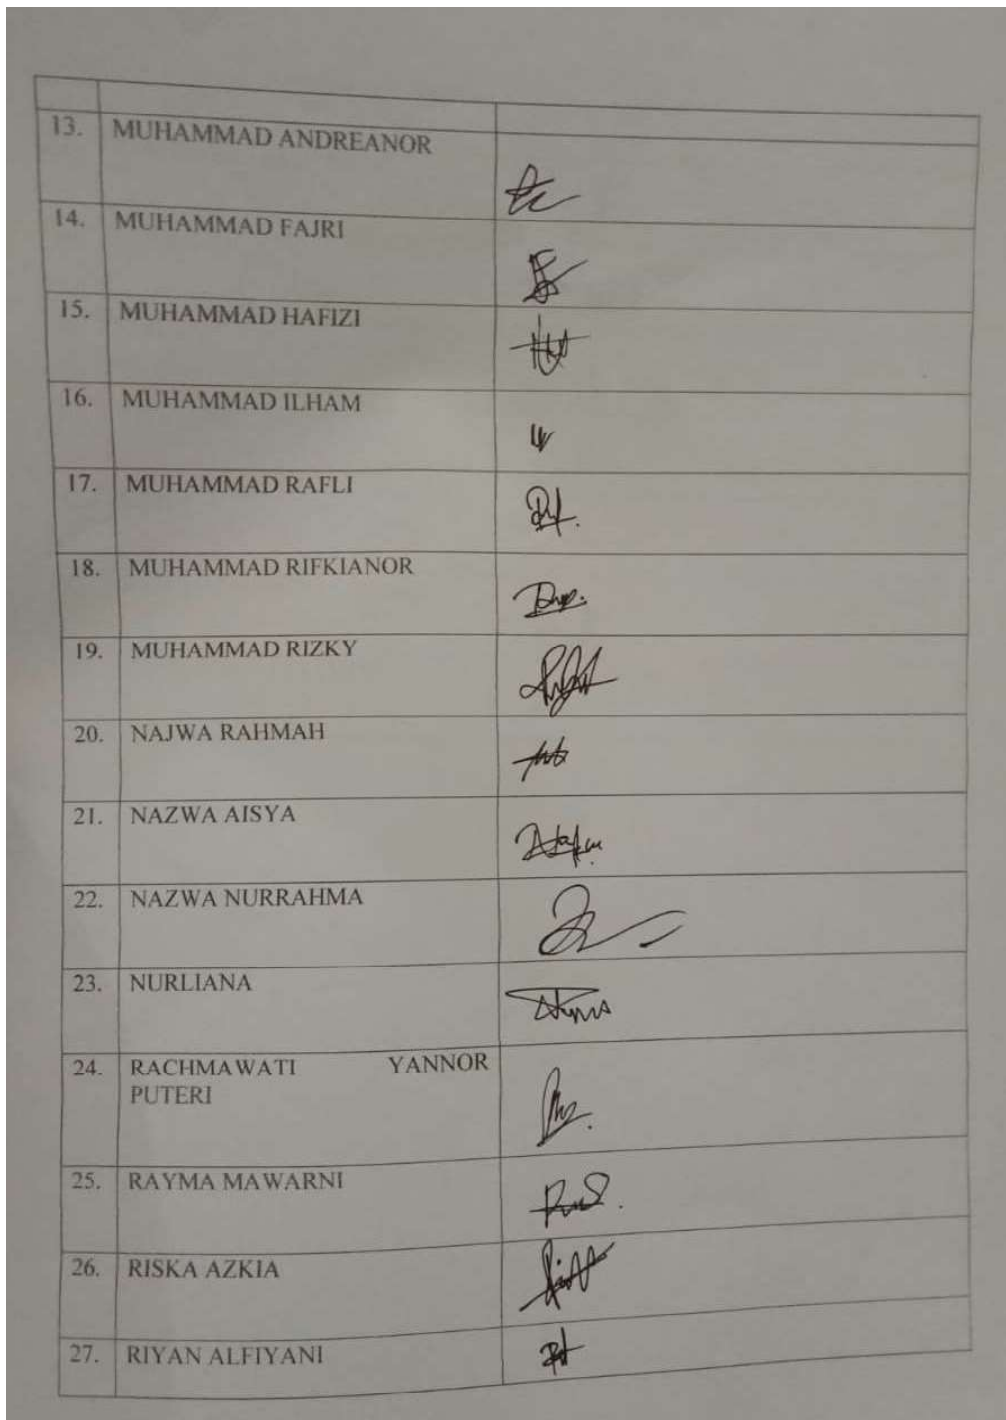 13. MUHAMMAD ANDREANOR
14. MUHAMMAD FAJRI
15. MUHAMMAD HAFIZI
16. MUHAMMAD ILHAM
17. MUHAMMAD RAFLI
18. MUHAMMAD RIFKIANOR
19. MUHAMMAD RIZKY
20. NAJWA RAHMAH
21. NAZWA AISYA
22. NAZWA NURRAHMA
23. NURLIANA
24. RACHMAWATI YANNOR
PUTERI
25. RAYMA MAWARNI
26. RISKA AZKIA
27. RIYAN ALFIYANI